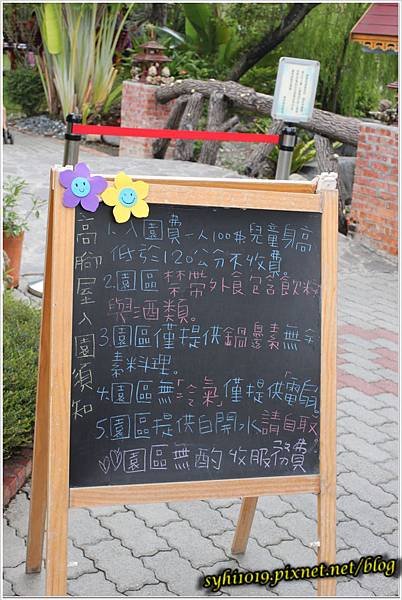 高腳屋入園須知
1.入園費一人100元兒童身高
低於120公分不收費。
2.園區禁帶外食包含飲料
與酒類。
3.園區僅提供鍋邊素無全
素料理。
4.園區無「冷氣」僅提供「電扇」。
5.園區提供白開水請自取
♡♡園區無酌收服務費
syhi1019.pixnet.net/blog